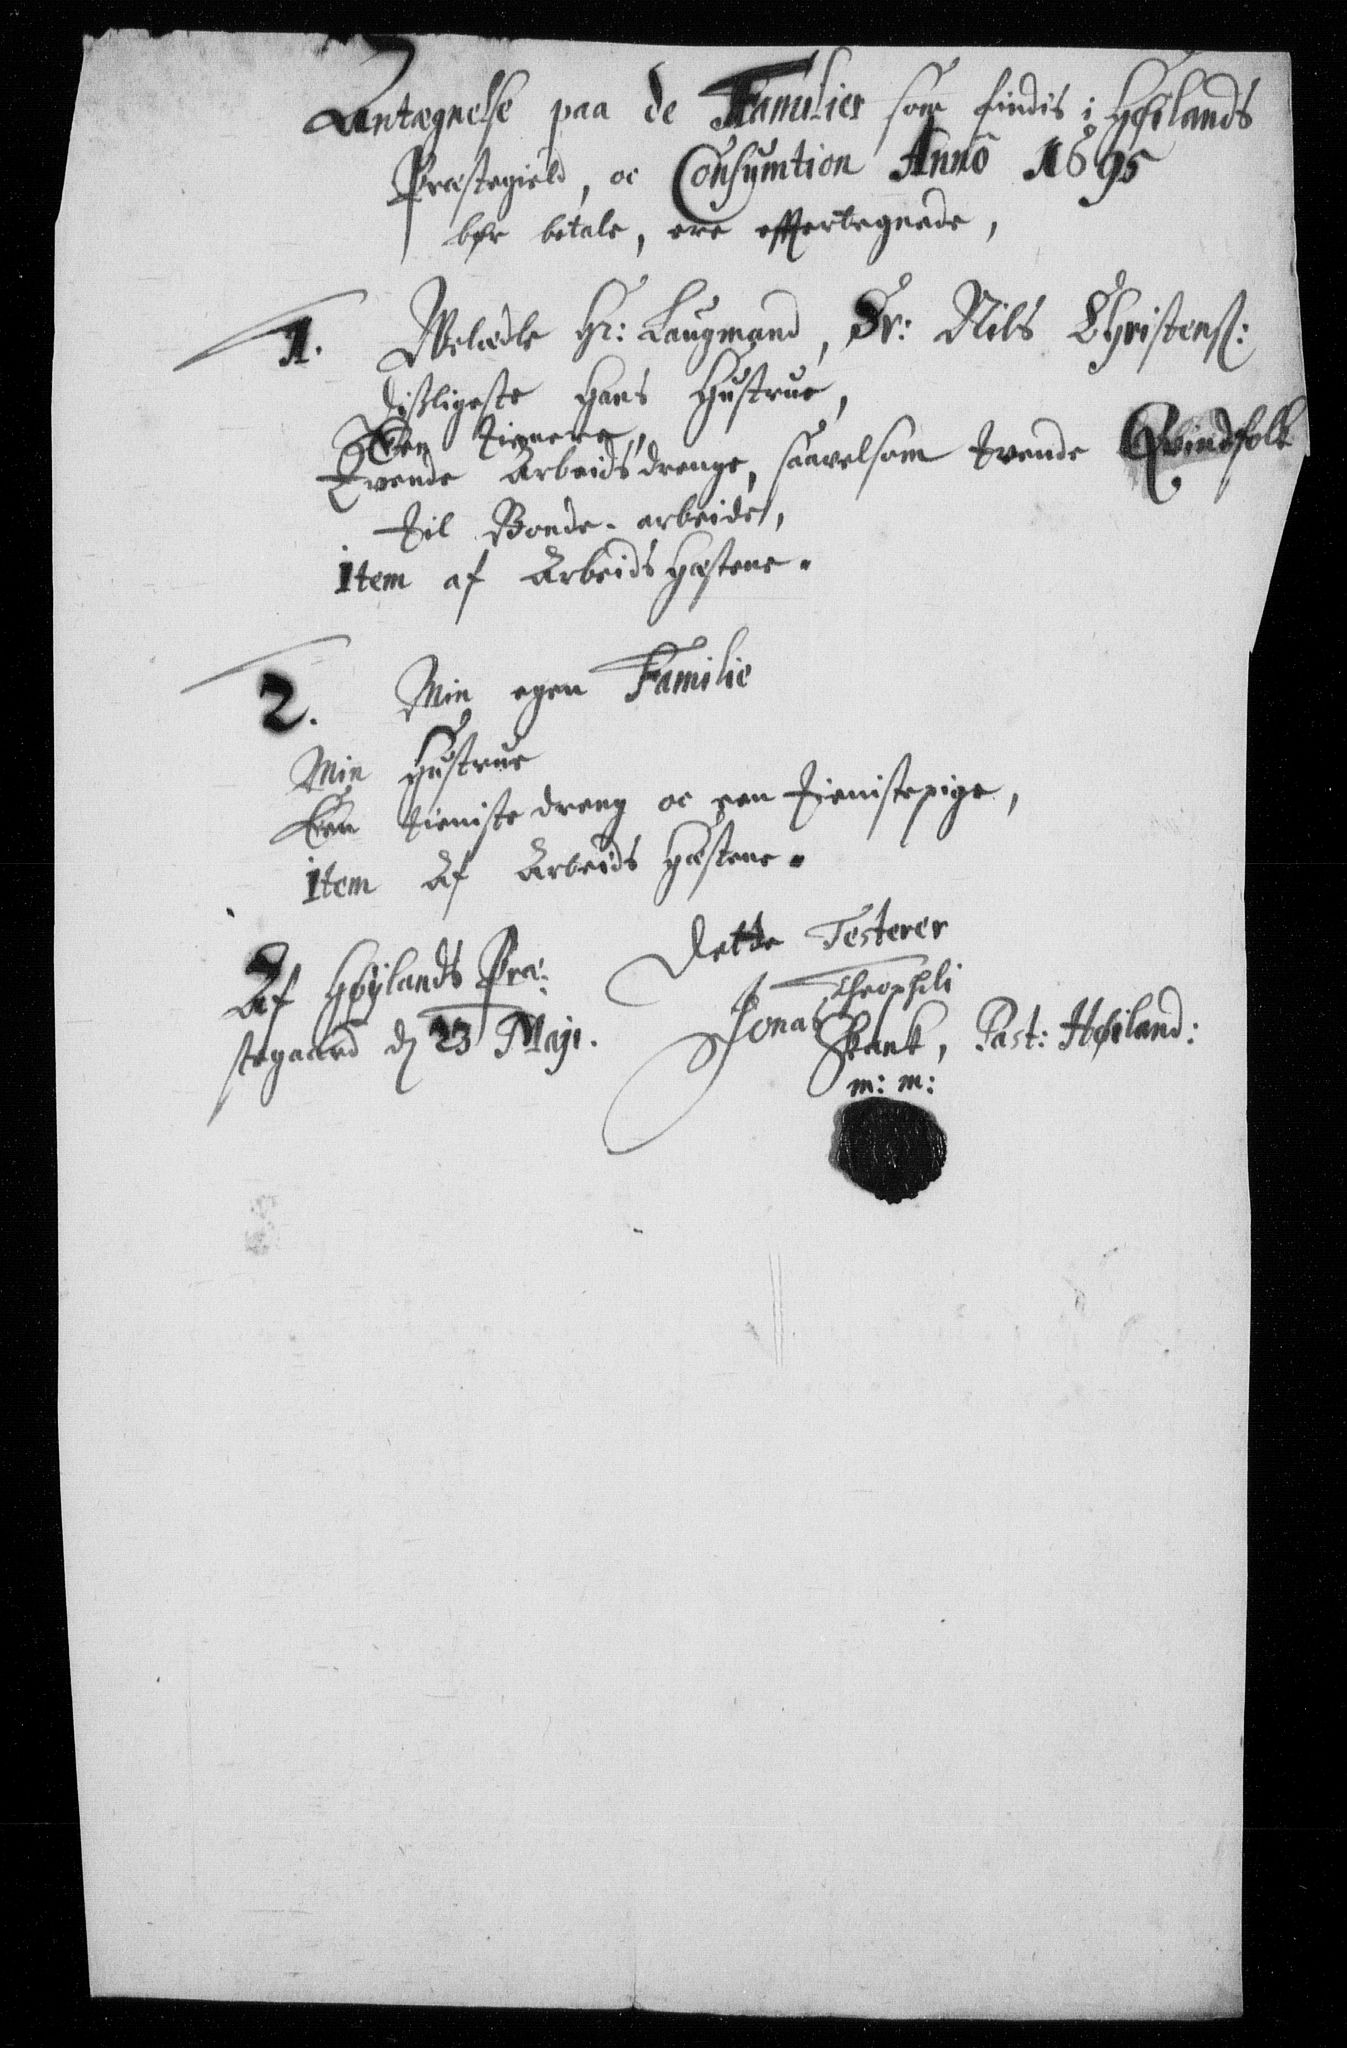 Antægnelse paa de Familier som findis i Høilands
Præstegield, oc Consumtion Anno 1695
bør betale, ere effertegnede,
1. Welædle Hr: Laugmand, Sr: Nils Christenß:
dißligeste Hans Hustrue,
Een tienere,
Tvende Arbeids drenge, saavelsom tvende Qvindfolk
til Bonde-arbeide,
Item af Arbeids Hæstene.
2. Min egen Familie
Min Hustrue
Een tieniste dreng oc een tienistepige,
Item Af Arbeids Hæstene.
Af Høylands Præ-
stegaard d 23 Maji.
Dette Testerer
Jonas Theophili
Skank, Past: Høiland:
m: m: